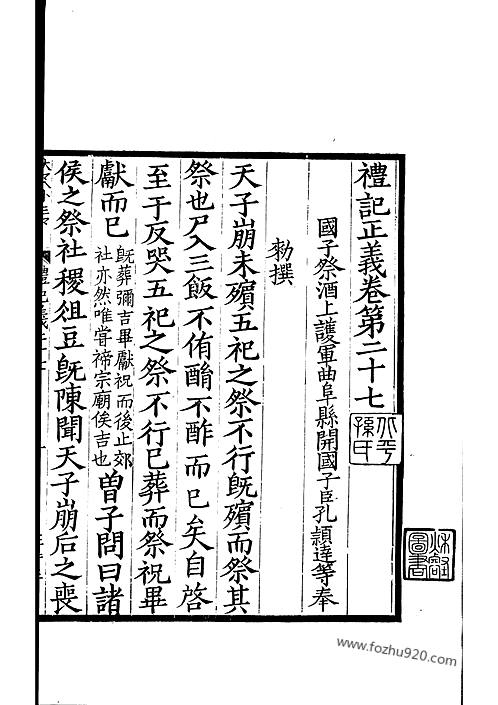 禮記正義卷第二十七
國子祭酒上護軍曲阜縣開國子臣孔穎達等奉
勑撰
天子崩未殯五祀之祭不行旣殯而祭其
祭也尸入三飯不侑酳不酢而已矣自啓
至于反哭五祀之祭不行已葬而祭祝畢
獻而已旣葬彌吉畢獻祝而後止郊社亦然唯嘗禘宗廟俟吉也曾子問曰諸
侯之祭社稷俎豆旣陳聞天子崩后之喪
北平孫氏
圖書
www.fozhu920.com